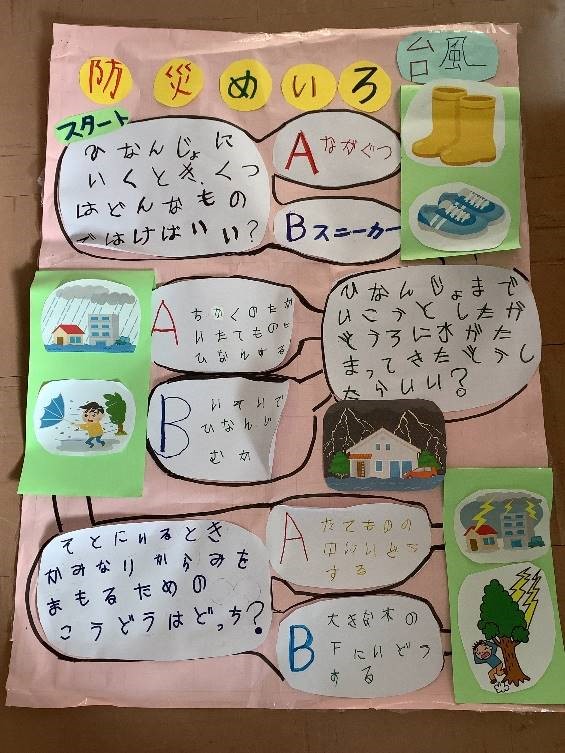 防災めいろ
台風
スタート
ひなんじょに
いくとき、くつ
はどんなもの
ではけばいい?
A ながぐつ
B スニーカー
ひなんじょまで
いこうとしたが
どうろに水がた
まってきたどうし
たらいい?
A ちかくのたか
いたてものに
ひなんする
B いそいで
ひなんじ
むか
そとにいるとき
かみなりからみを
まもるための
こうどうはどっち?
A たてものの
する
B 大きな木の
下にいどう
する